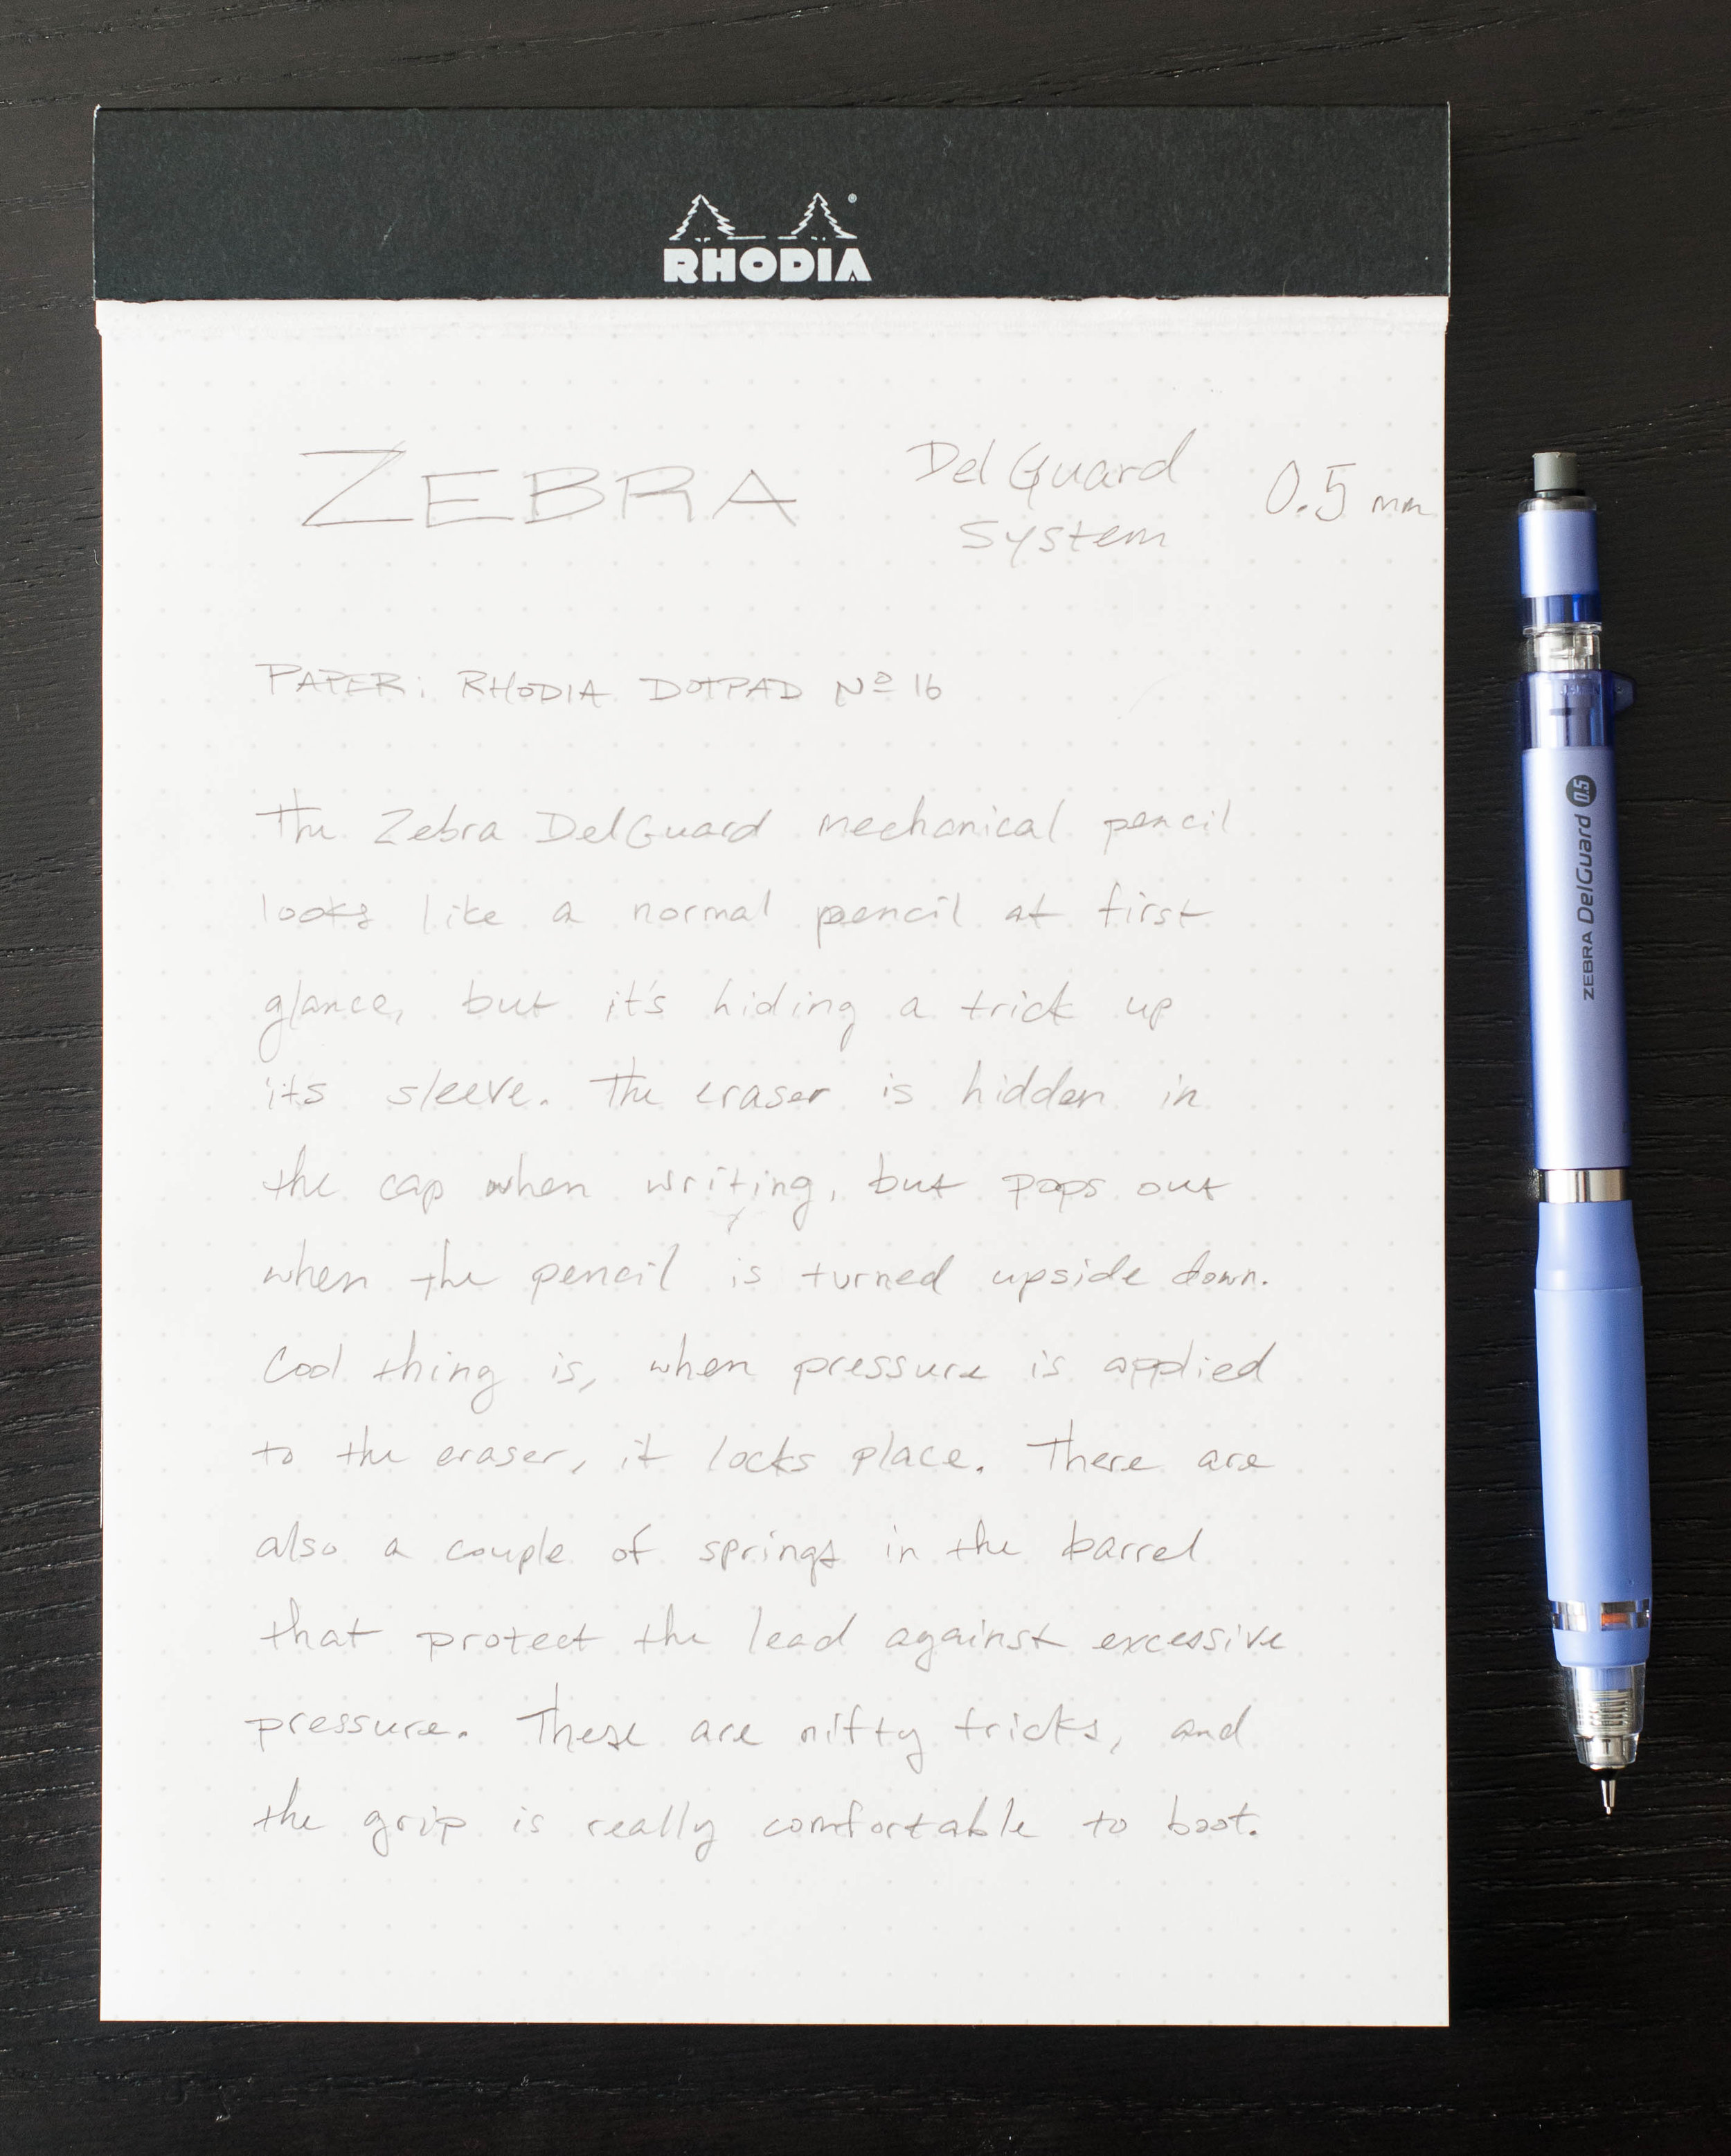 RHODIA
ZEBRA DelGuard System 0.5 mm
PAPER: RHODIA DOTPAD Nº 16
The Zebra DelGuard mechanical pencil
looks like a normal pencil at first
glance, but it's hiding a trick up
its sleeve. The eraser is hidden in
the cap when writing, but pops out
when the pencil is turned upside down.
Cool thing is, when pressure is applied
to the eraser, it locks place. There are
also a couple of springs in the barrel
that protect the lead against excessive
pressure. These are nifty tricks, and
the grip is really comfortable to boot.
ZEBRA DelGuard 0.5